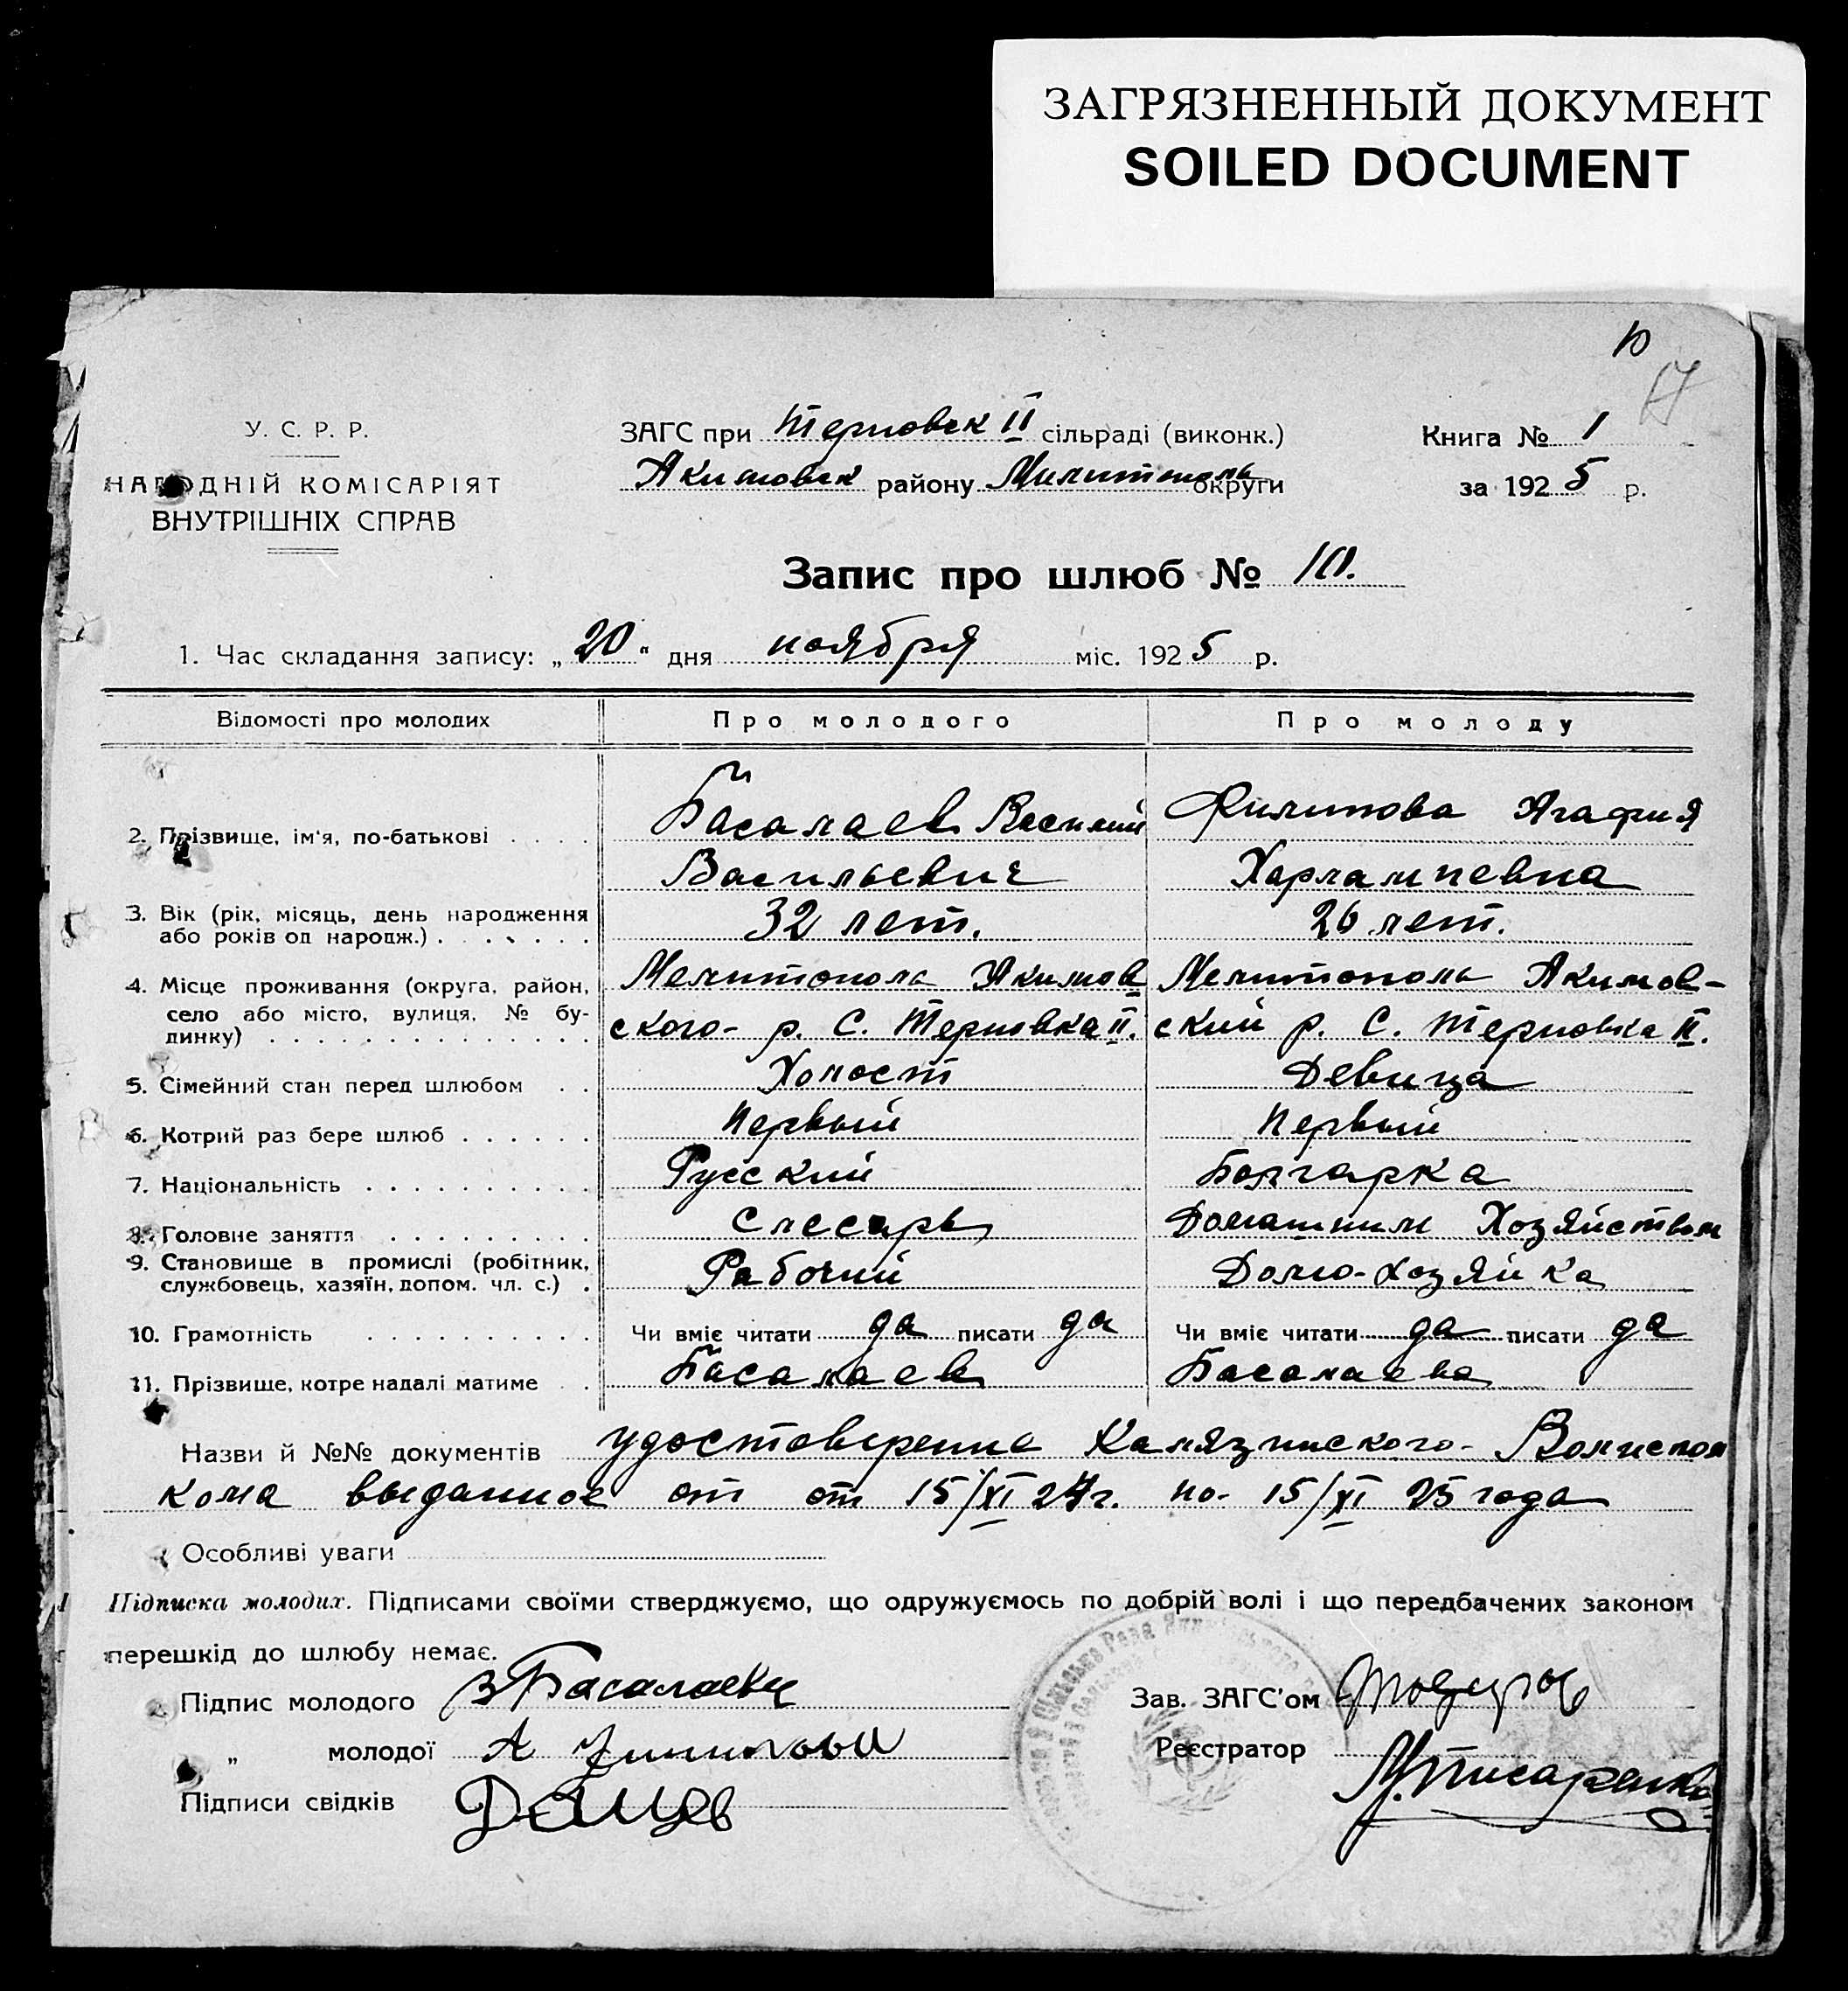 ЗАГРЯЗНЕННЫЙ ДОКУМЕНТ
SOILED DOCUMENT
10
17
У. С. Р. Р.
НАРОДНІЙ КОМІСАРІЯТ
ВНУТРІШНІХ СПРАВ
ЗАГС при Терновск II сільраді (виконк.)
Акимовск району Мелитополь округи
Книга № 1
за 1925 р.
Запис про шлюб № 10.
1. Час складання запису: „20“ дня ноября міс. 1925 р.
Відомості про молодих
Про молодого
Про молоду
2. Прізвище, ім'я, по-батькові . . . .
Басалаев Василий
Васильевич
Филипова Агафия
Харлампевна
3. Вік (рік, місяць, день народження
або років од народж.) . . . . . . .
32 лет.
26 лет.
4. Місце проживання (округа, район,
село або місто, вулиця, № бу-
динку) . . . . . . . . . . . . . . .
Мелитополя Акимов
ского- р. С. Терновка II.
Мелитополь Акимов-
ский р. С. Терновка II.
5. Сімейний стан перед шлюбом . .
Холост
Девица
6. Котрий раз бере шлюб . . . . . .
Первый
Первый
7. Національність . . . . . . . . . .
Русский
Болгарка
8. Головне заняття . . . . . . . . .
Слесарь
Домашним Хозяйством
9. Становище в промислі (робітник,
службовець, хазяїн, допом. чл. с.) .
Рабочий
Домо-хозяйка
10. Грамотність . . . . . . . . . .
Чи вміє читати да писати да
Чи вміє читати да писати да
11. Прізвище, котре надалі матиме . .
Басалаев
Басалаева
Назви й №№ документів удостоверение Калязинского- Волиспол
кома выданное от от 15/XI 24г. по- 15/XI 25 года
Особливі уваги
Підписка молодих. Підписами своїми стверджуємо, що одружуємось по добрій волі і що передбачених законом
перешкід до шлюбу немає.
Підпис молодого В Басалаев
„ молодої А Филипова
Підписи свідків
Зав. ЗАГС'ом
Реєстратор М. Писаренко